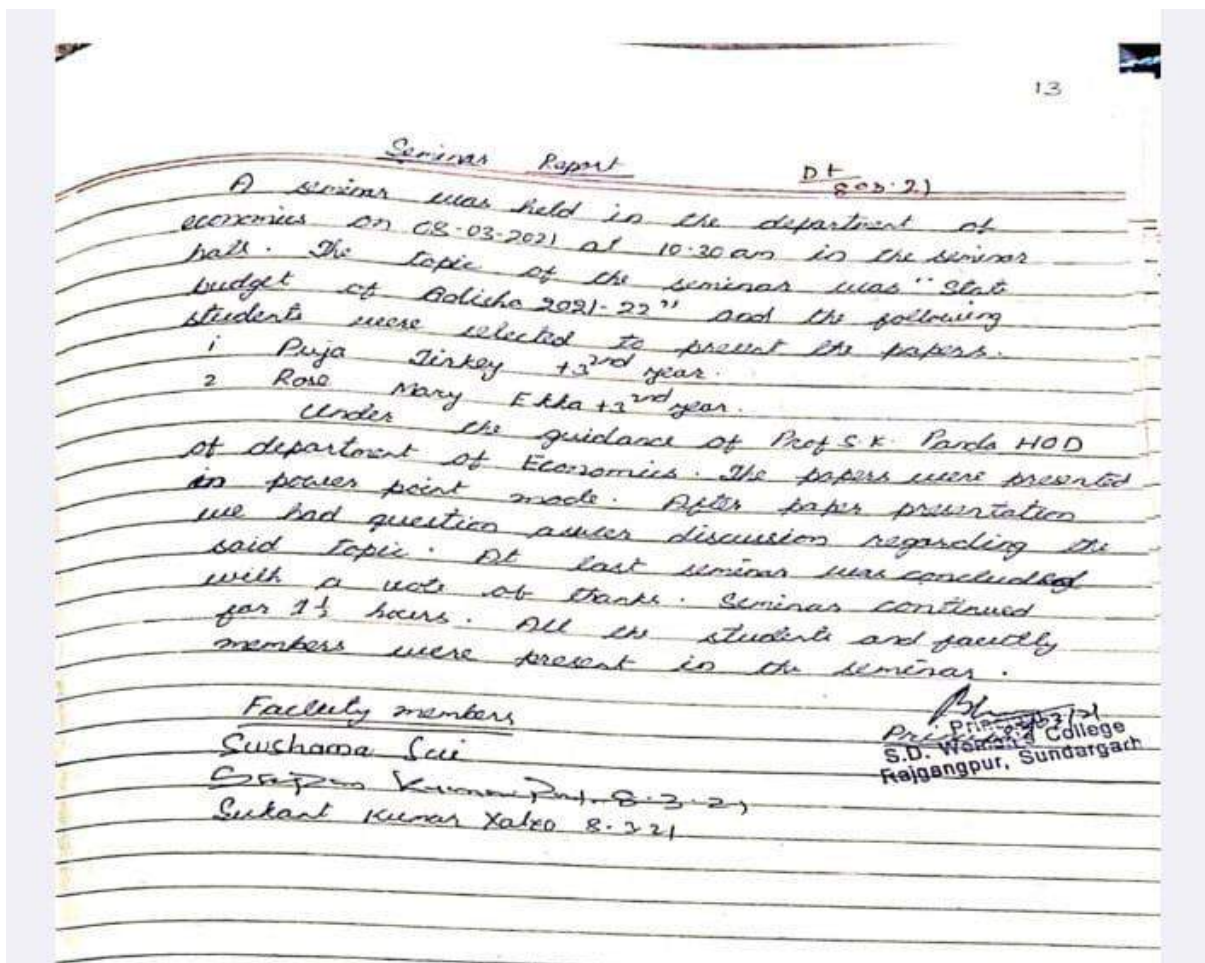 13
Seminar Report Dt
8.03.21
A seminar was held in the department of
economics on 08-03-2021 at 10.30 am in the seminar
hall. The topic of the seminar was "Stat
budget of Odisha 2021-22" and the following
students were selected to present the papers.
1 Puja Tirkey +3 2nd year.
2 Rose Mary Ekka +3 2nd year.
Under the guidance of Prof S.K. Panda HOD
of department of Economics. The papers were presented
in power point mode. After paper presentation
we had question answer discussion regarding the
said topic. At last seminar was concluded
with a vote of thanks. Seminar continued
for 1½ hours. All the students and faculty
members were present in the seminar.
Faculty members
Sushama Sui
Kumar 8-3-21
Sukant Kumar Xalxo 8.3.21
Principal
S.D. Women's College
Rajgangpur, Sundargarh